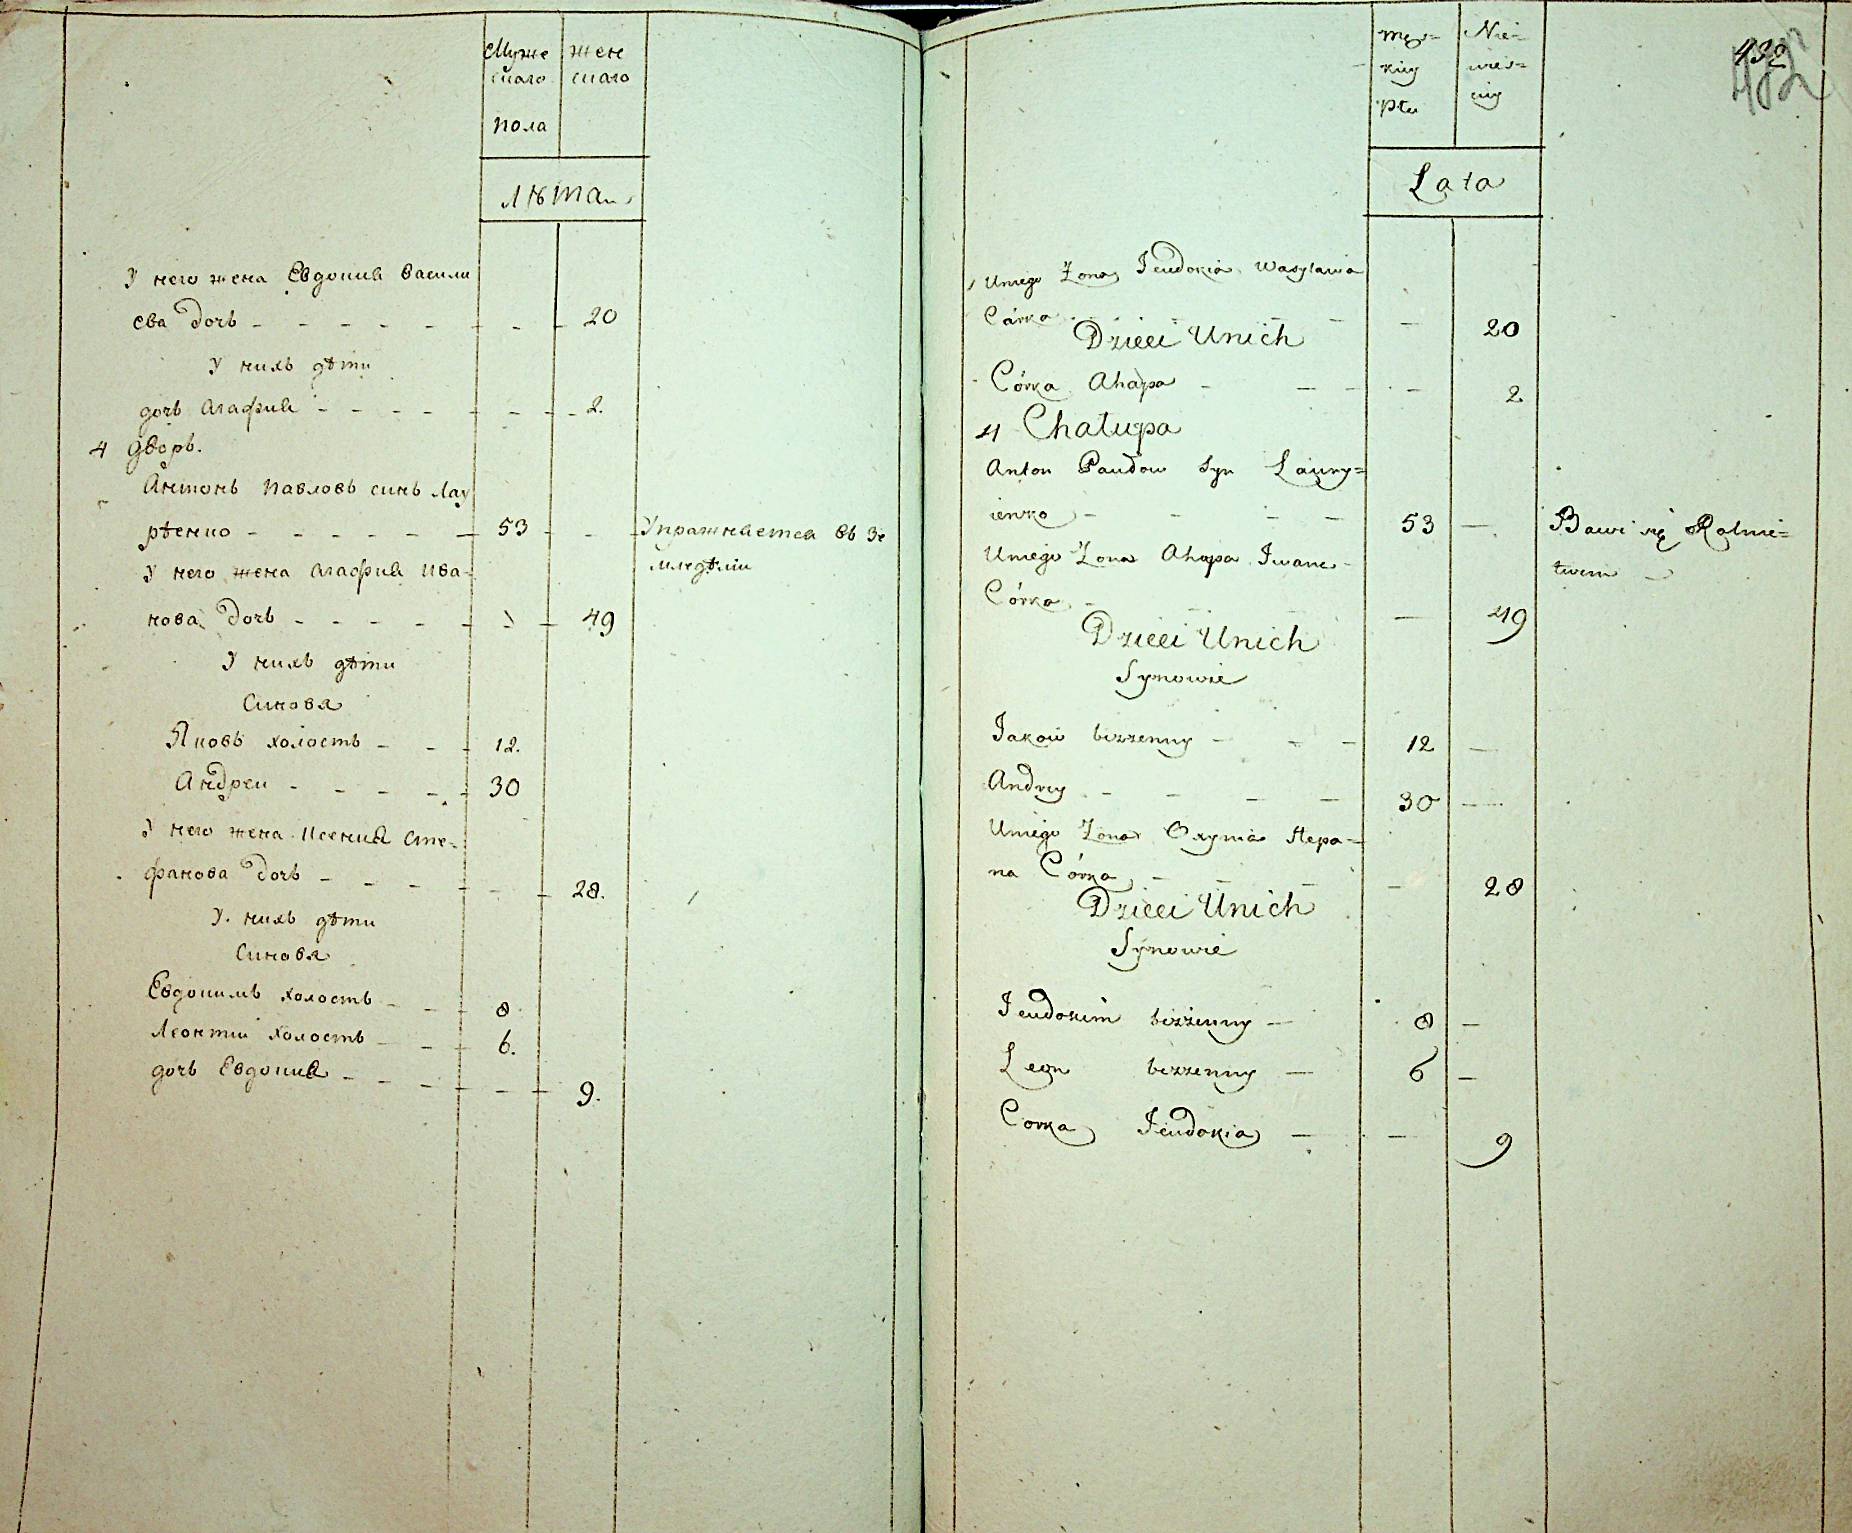 Муже
скаго
пола
жен
скаго
Лѣта
У него жена Евдокия Васили
ева дочь 20
У нихъ дѣти
дочь Агафия 2.
4 дворъ.
Антонъ Павловъ синъ Лау
рѣенко 53
Упражняется въ Зе
мледѣлии
У него жена Агафия Ива-
нова дочь 49
У нихъ дѣти
Синовя
Яковъ холостъ 12.
Андреи 30
У него жена Ксения Сте-
фанова дочь 28.
У нихъ дѣти
Синовя
Евдокимъ холостъ 8
Леонтии холостъ 6.
дочь Евдокия 9.
męz=
kiy
Płu
Nie=
wies=
ciy
432
432
Lata
Uniego Zona Jeudokia Wasylawa
Córka 20
Dzieci Unich
Córka Ahapa 2
4 Chałupa
Anton Pawłow Syn Laury=
ienko 53
Bawi się Rolnic=
twem
Uniego Zona Ahapa Iwana
Córka 49
Dzieci Unich
Synowie
Jakow bezzenny 12
Andrey 30
Uniego Zona Oxynia Stepa=
na Córka 28
Dzieci Unich
Synowie
Jeudokim bezzenny 8
Leon bezzenny 6
Corka Jeudokia 9